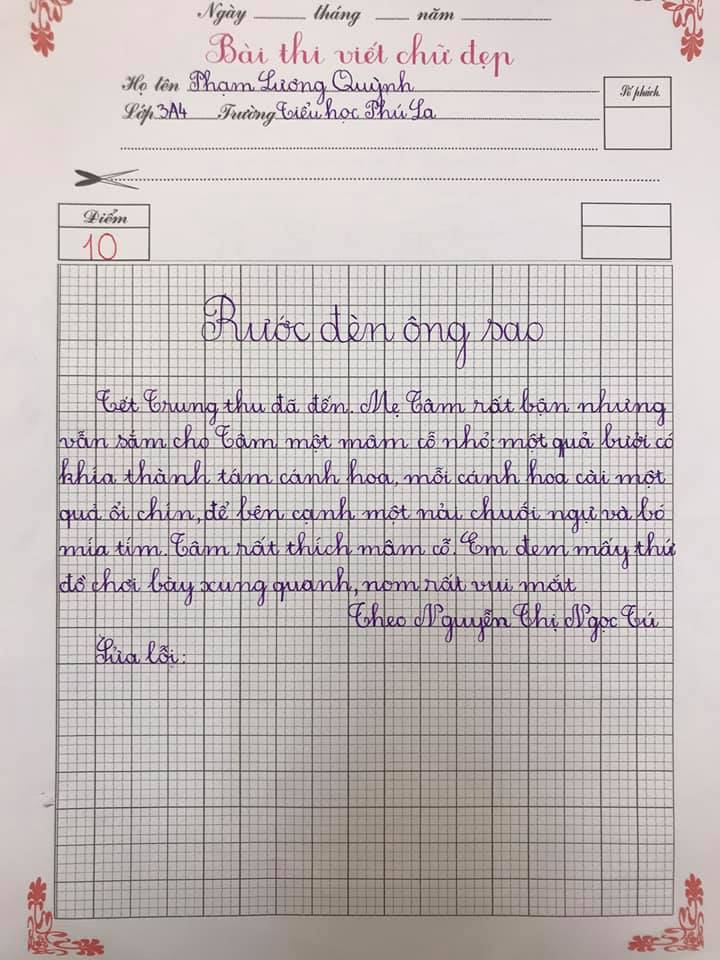 Ngày ______ tháng ____ năm __________
Bài thi viết chữ đẹp
Họ tên Phạm Lương Quỳnh
Lớp 3A4 Trường Tiểu học Phú La
Số phách
Điểm
10
Rước đèn ông sao
Tết Trung thu đã đến. Mẹ Tâm rất bận nhưng
vẫn sắm cho Tâm một mâm cỗ nhỏ: một quả bưởi có
khía thành tám cánh hoa, mỗi cánh hoa cài một
quả ổi chín, để bên cạnh một nải chuối ngự và bó
mía tím. Tâm rất thích mâm cỗ. Em đem mấy thứ
đồ chơi bày xung quanh, nom rất vui mắt
Theo Nguyễn Thị Ngọc Tú
Sửa lỗi: